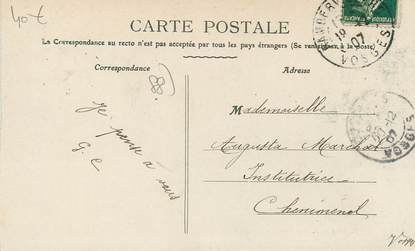 40 €
CARTE POSTALE
La Correspondance au recto n'est pas acceptée par tous les pays étrangers (Se renseigner à la poste)
Correspondance
Adresse
Je pense à vous
G. C
Mademoiselle
Augusta Marchal
Institutrice
Cheniménol
VOSGES
07